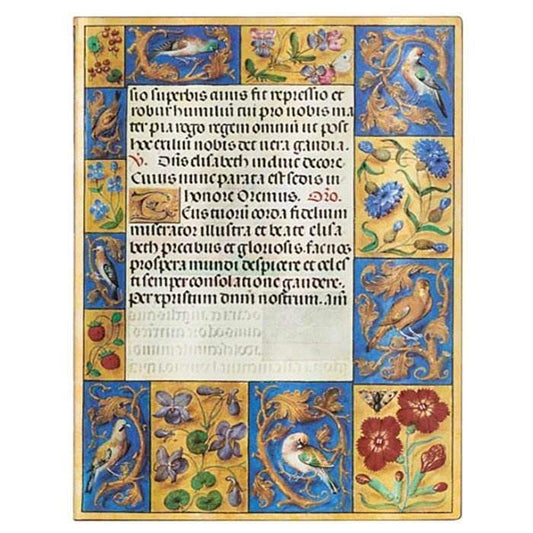 sio superbis cuius fit repressio et
robur humiliũ tui pro nobis ma
ter pia rogo regem omniũ ut post
hoc exiliũ nobis det vera gaudia.
V. Dñs elisabeth induit decore.
Cuius nunc parata est sedis in
honore Oremus. Oro.
Eus tuorũ corda fidelium
miserator illustra et beate elisa
beth precibus et gloriosis fac nos
prospera mundi despicere et celes
ti semper consolatione gaudere.
per xpristum dnm nostrum. am